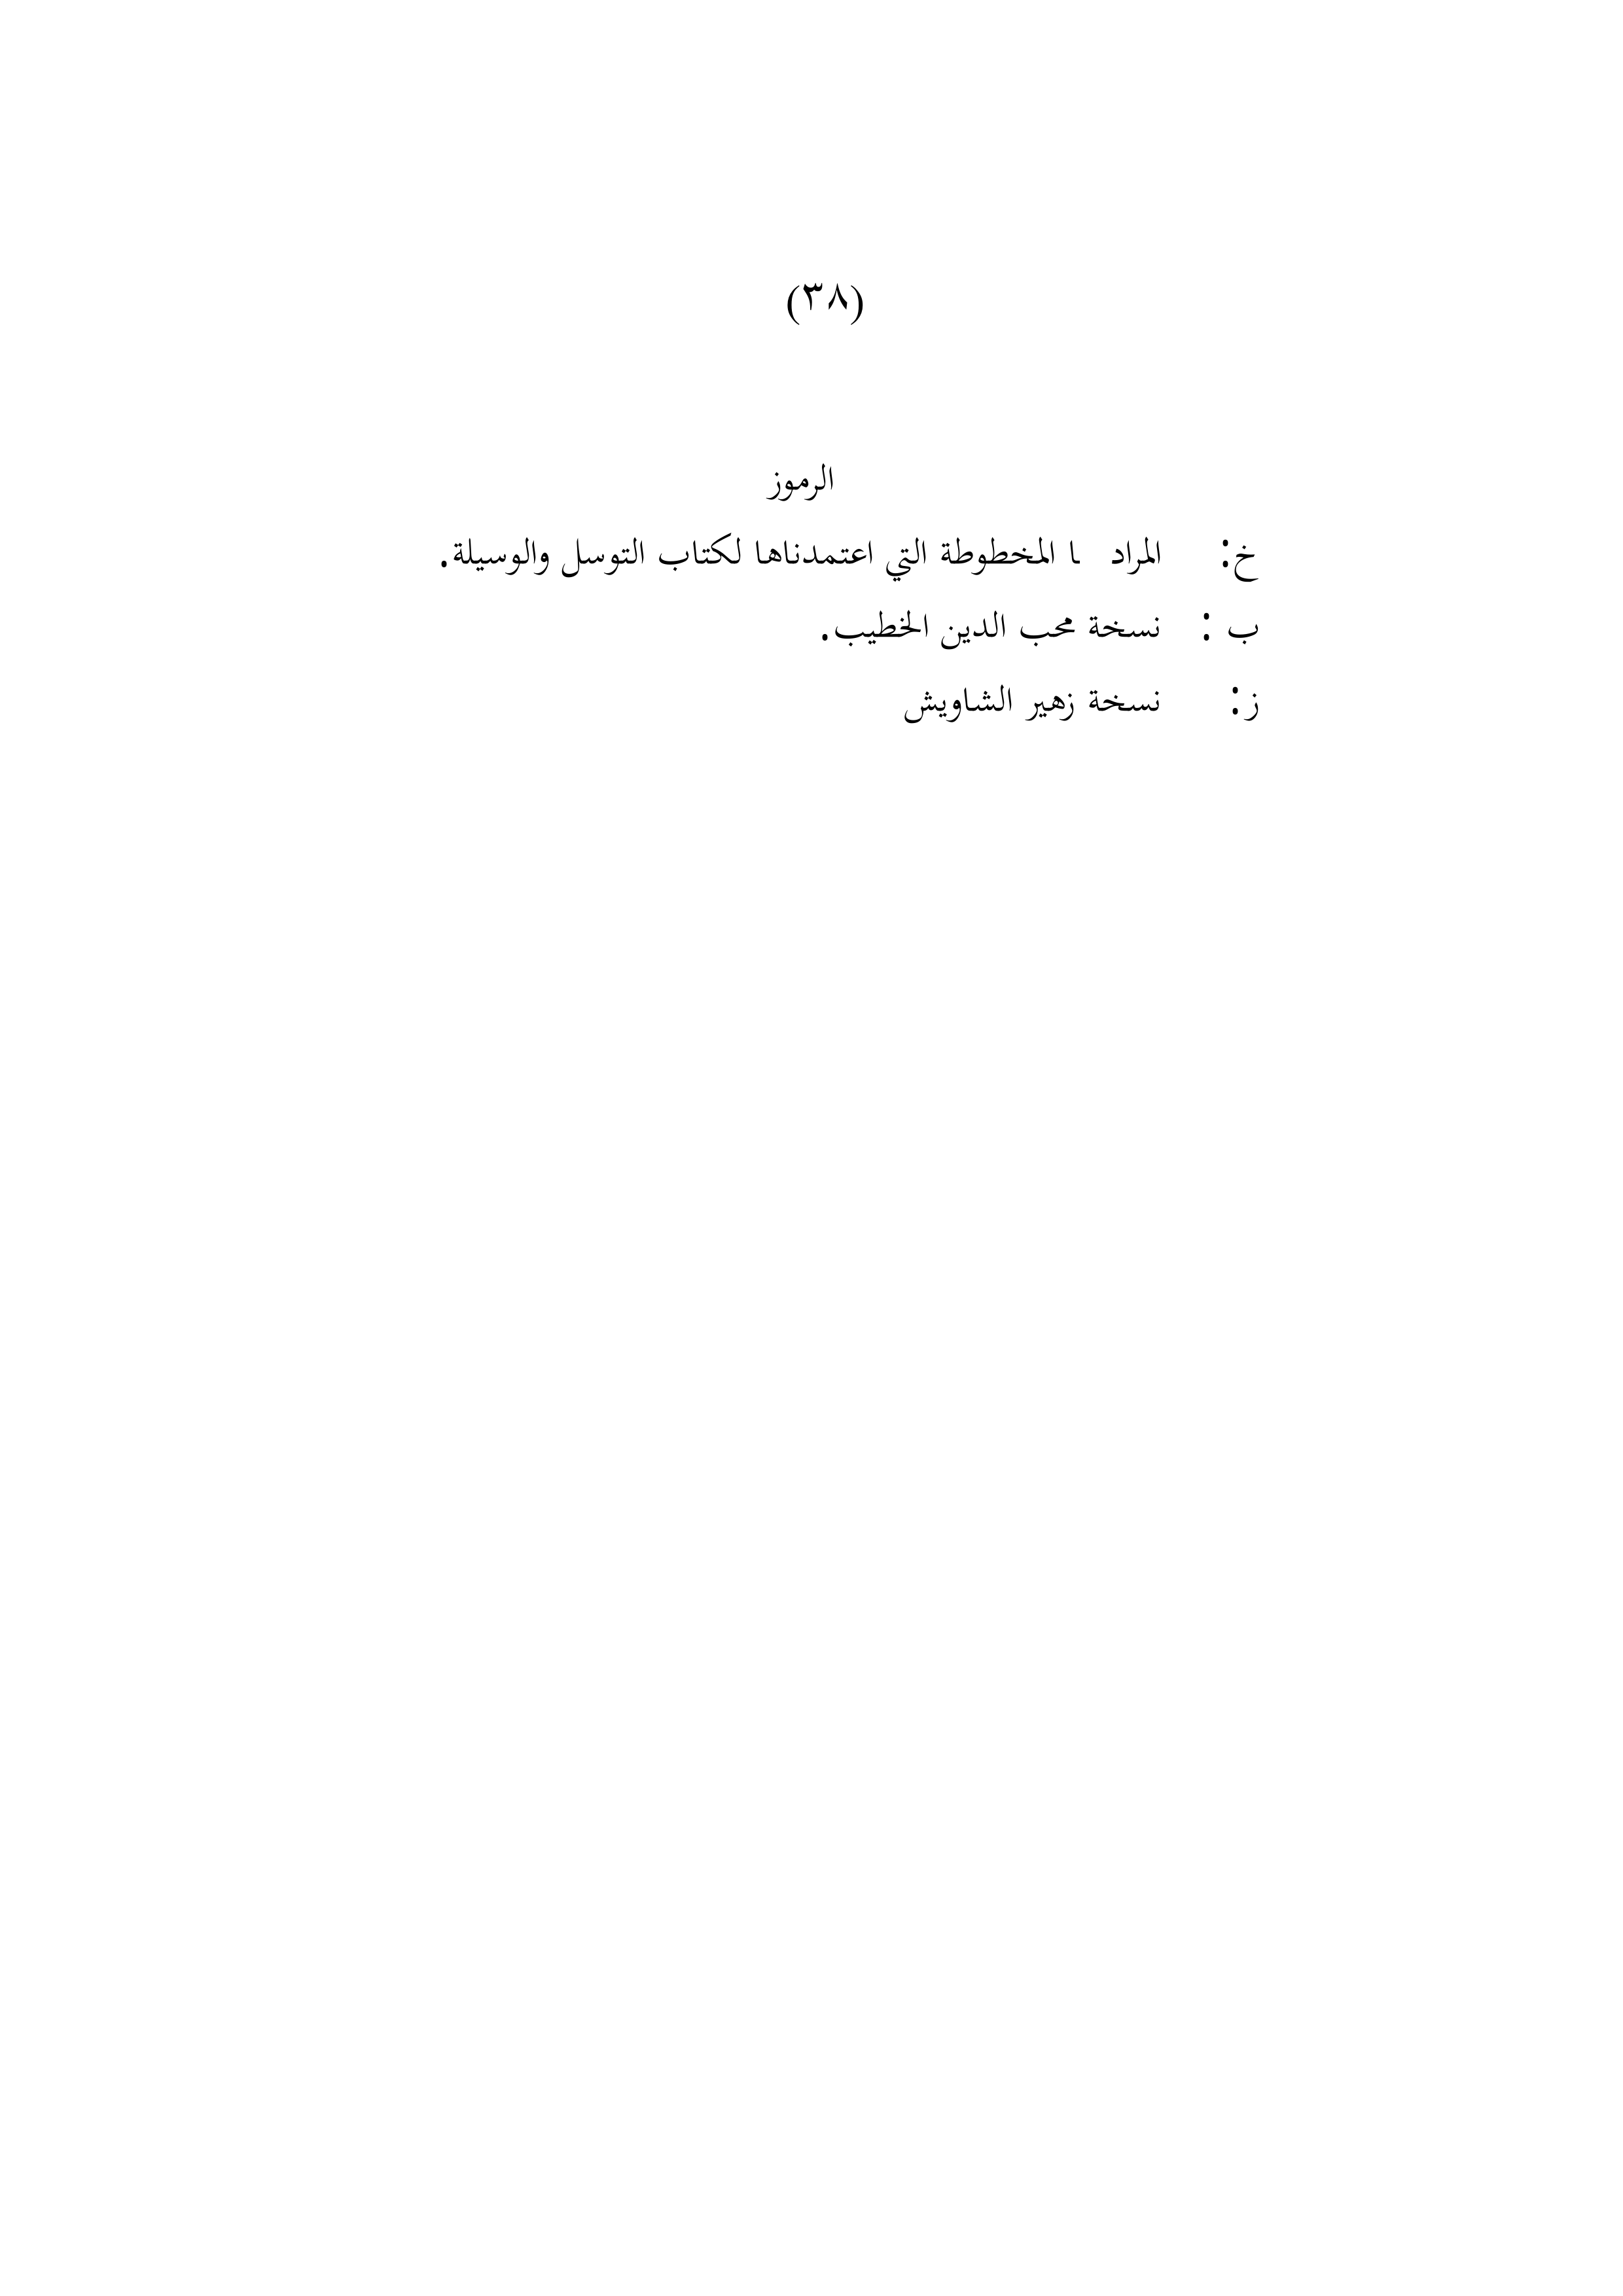 (٣٨)
الرموز
خ: المراد ـا المخطوطة التي اعتمدناها لكتاب التوسل والوسيلة.
ب : نسخة محب الدين الخطيب.
ز: نسخة زهير الشاويش